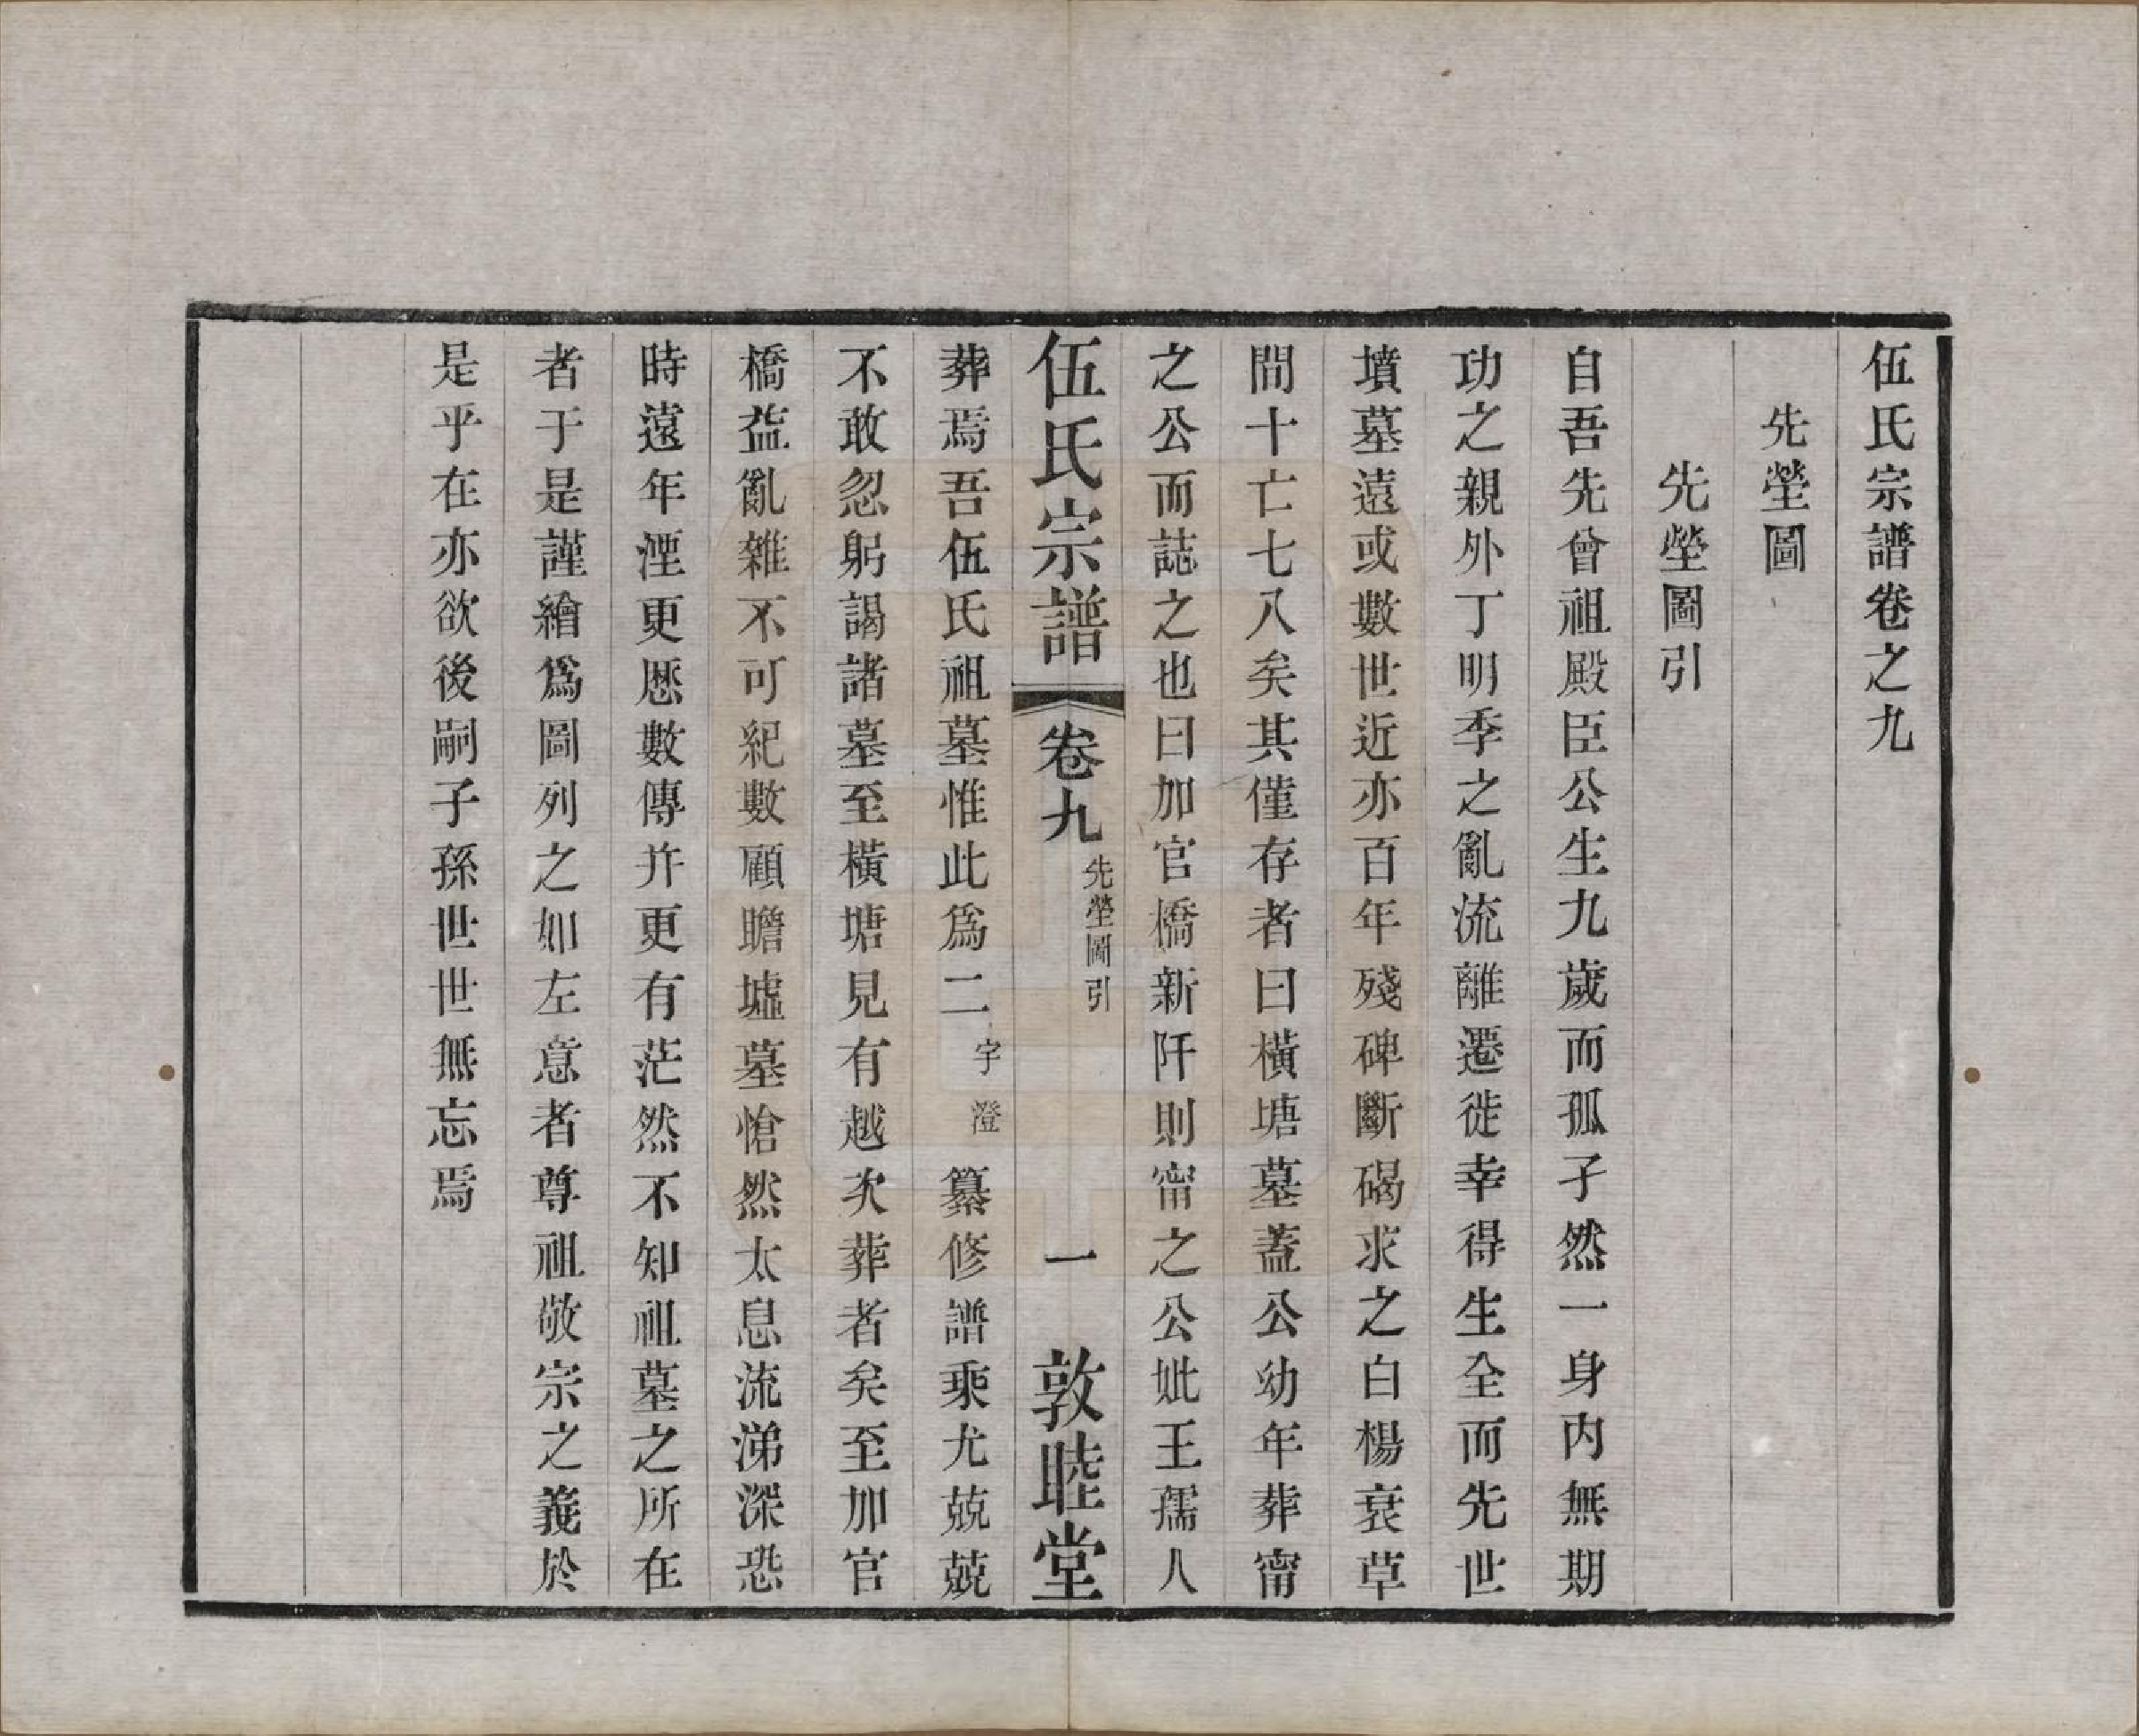 伍氏宗譜卷之九
先塋圖
先塋圖引
自吾先曾祖殿臣公生九歲而孤孑然一身內無期
功之親外丁明季之亂流離遷徙幸得生全而先世
墳墓遠或數世近亦百年殘碑斷碣求之白楊衰草
間十亡七八矣其僅存者曰橫塘墓蓋公幼年葬甯
之公而誌之也曰加官橋新阡則甯之公妣王孺人
伍氏宗譜
卷九
先塋圖引
一
敦睦堂
葬焉吾伍氏祖墓惟此為二字澄纂修譜乘尤兢兢
不敢忽躬謁諸墓至橫塘見有越次葬者矣至加官
橋益亂雜不可紀數顧瞻墟墓愴然太息流涕深恐
時遠年湮更歷數傳并更有茫然不知祖墓之所在
者于是謹繪為圖列之如左意者尊祖敬宗之義於
是乎在亦欲後嗣子孫世世無忘焉